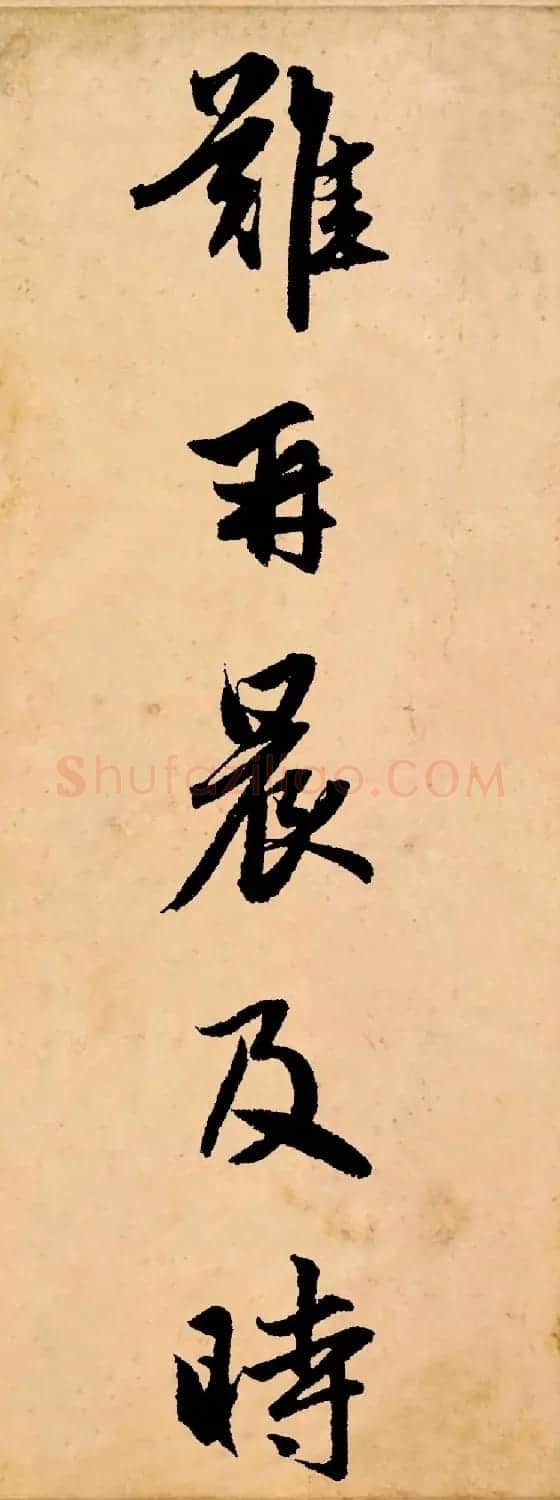 難再晨及時
Shufaziliao.COM